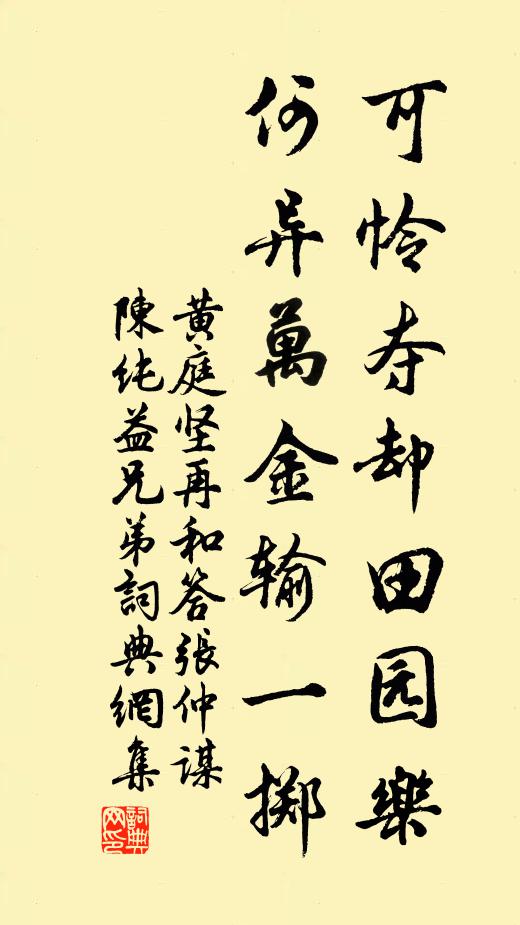 可怜夺却田园樂
何异萬金输一掷
黄庭坚再和答張仲谋
陳纯益兄弟詞典網集
詞典
网印